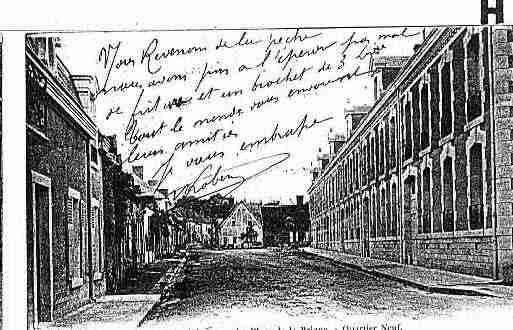 H
Nous Revenons de la peche
nous avons pris a l'épervier pas mal
de friture et un brochet de 3 livres
tout le monde vous envoient
leurs amities
Je vous embrasse
Robin
Place de la - Quartier Neuf.